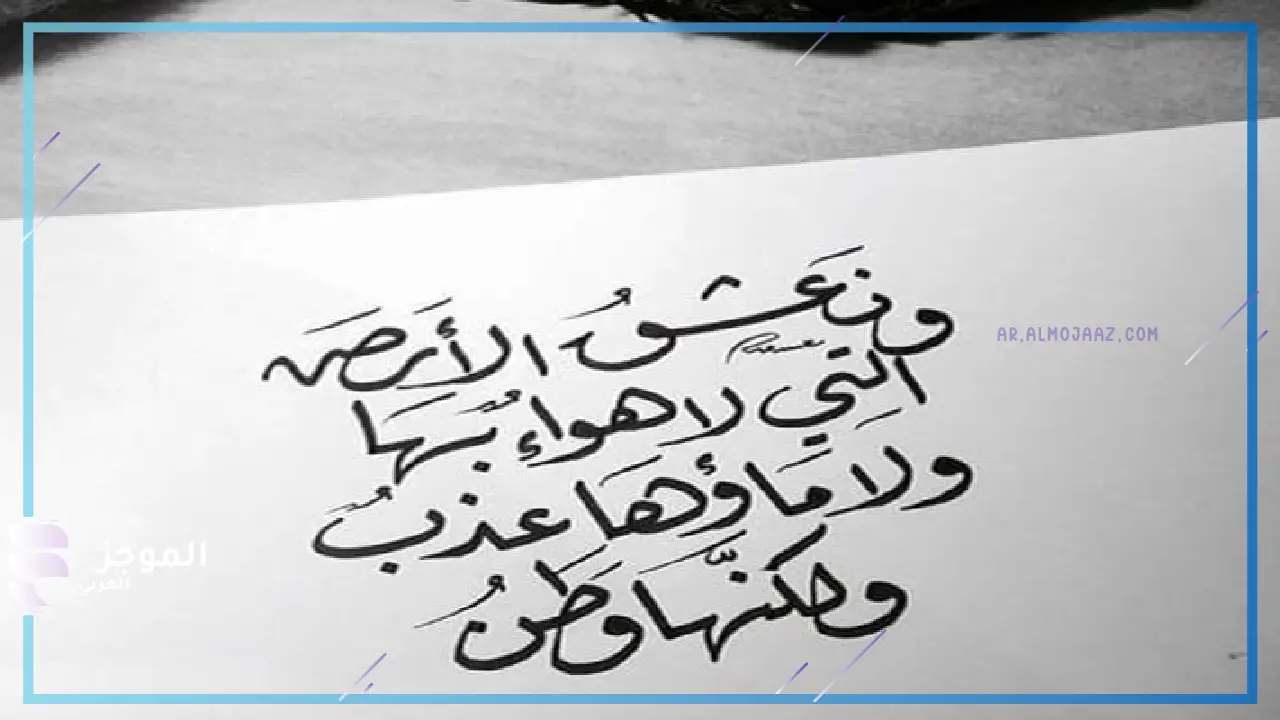 ونَعشقُ الأَرضَ
التي لا هواءٌ بهَا
ولا مَاؤهَا عذبٌ
ولكنّهَا وَطنُ
AR.ALMOJAAZ.COM
الموجز
العربي